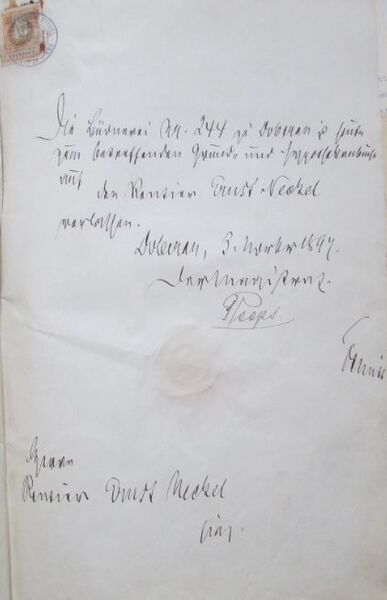 Die Büdnerei No. 244 zu Doberan ist heute
zum betreffenden Grund- und Hypothekenbuche
auf den Rentier Ernst Neckel
verlassen.
Doberan, 3. Novbr 1897.
Der Magistrat.
Herrn
Rentier Ernst Neckel
hier